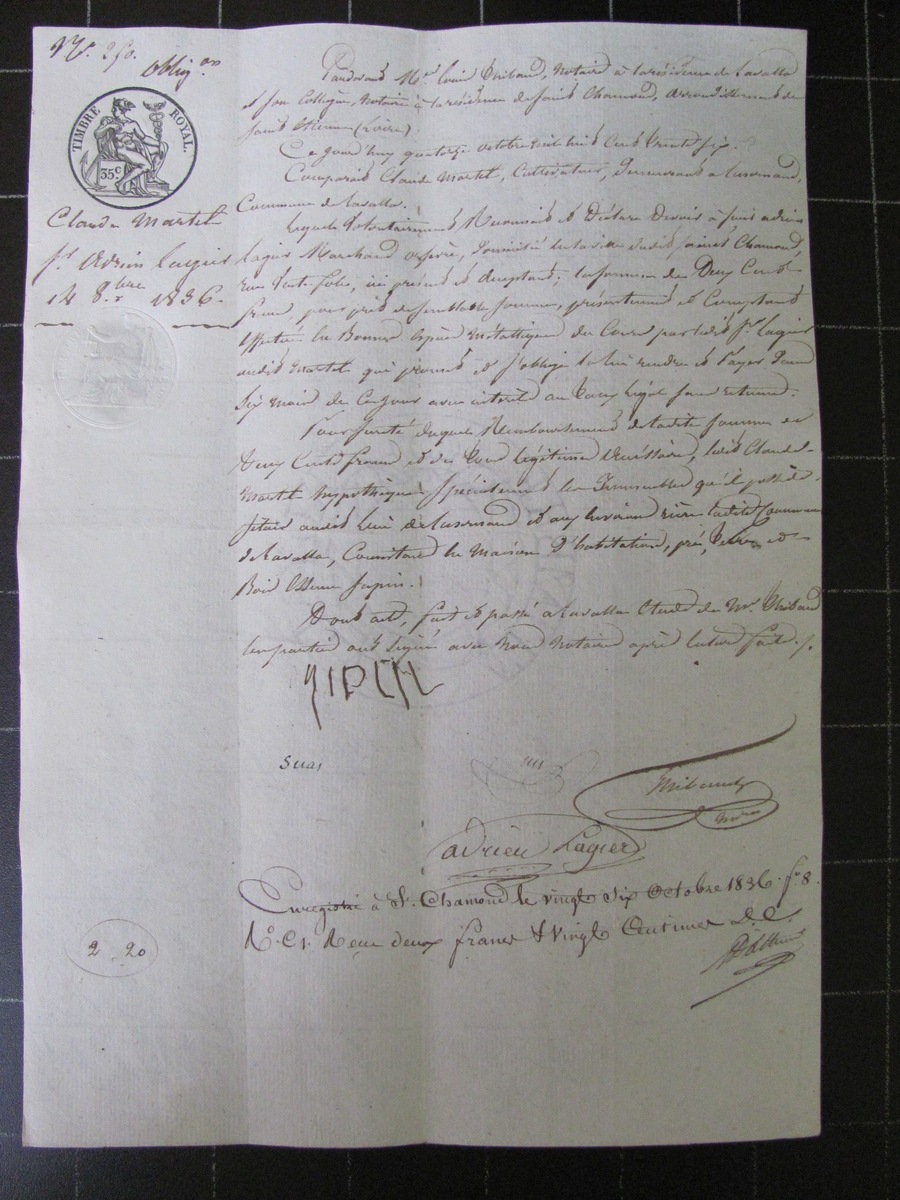 N.° 250.
Oblig.on
TIMBRE ROYAL.
35 c
Claude Martel
St. Adrien Lagier
14 8.bre 1836.
Pardevant Me. Louis Thibaud, Notaire à la résidence de Lavalla
et son Collègue, Notaire à la résidence de Saint Chamond, arrondissement de
Saint Etienne (Loire)
Ce jourd'huy quatorze octobre mil huit cent trente six.
Comparait Claude Martel, Cultivateur, Demeurant à Luzernaud,
Commune de Lavalla.
Lequel volontairement Reconnait et Déclare Devoir à sieur adrien
Lagier Marchand, domicilié en la ville dudit Saint Chamond,
rue, ici présent et acceptant; la somme de Deux Cents
francs, pour prêt de semblable somme, présentement et Comptant
Effectué en Bonnes espèces métalliques du Cours par ledit Sr. Lagier
audit Martel qui promet et s'oblige la lui rendre et Payer Dans
Six mois de ce jour avec intérêt au Taux légal sans retenue.
Pour sureté duquel Remboursement de ladite somme de
Deux Cents francs et de tous légitimes accessoires, ledit Claude
Martel hypothèque Spécialement les Immeubles qu'il possède
situés audit Lieu de Luzernaud et aux environs rière ladite Commune
de Lavalla, Consistant en Maison d'habitation, prés, Terres et
Bois Essence sapin.
Dont acte, fait et passé à Lavalla Etude de Me. Thibaud
les parties ont signé avec Nous Notaires après lecture faite./.
Thibaud
adrien Lagier
Enregistré à St. Chamond le vingt six Octobre 1836. fo 8.
R.o C. 1. Reçu deux francs & vingt Centimes D. C.
2 20